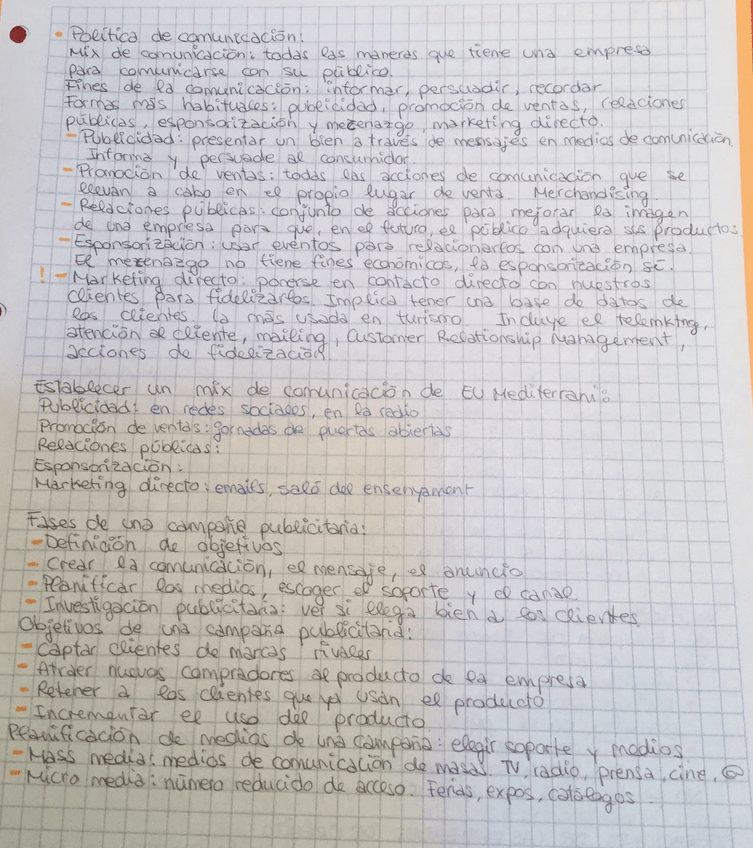 - Política de comunicación:
Mix de comunicación: todas las maneras que tiene una empresa
para comunicarse con su público.
Fines de la comunicación: informar, persuadir, recordar
Formas más habituales: publicidad, promoción de ventas, relaciones
públicas, esponsorización y mezenazgo, marketing directo.
- Publicidad: presentar un bien a través de mensajes en medios de comunicación
Informa y persuade al consumidor
- Promoción de ventas: todas las acciones de comunicación que se
llevan a cabo en el propio lugar de venta. Merchandising
- Relaciones públicas: conjunto de acciones para mejorar la imagen
de una empresa para que, en el futuro, el público adquiera sus productos
- Esponsorización: usar eventos para relacionarlos con una empresa.
El mezenazgo no tiene fines económicos, la esponsorización sí.
! - Marketing directo: ponerse en contacto directo con nuestros
clientes para fidelizarlos. Implica tener una base de datos de
los clientes. La más usada en turismo. Incluye el telemktng,
atención al cliente, mailing, Customer Relationship Management,
acciones de fidelización.
Establecer un mix de comunicación de EU Mediterrani:
Publicidad: en redes sociales, en la radio
Promoción de ventas: jornadas de puertas abiertas
Relaciones públicas:
Esponsorización:
Marketing directo: emails, saló del ensenyament
Fases de una campaña publicitaria:
- Definición de objetivos
- Crear la comunicación, el mensaje, el anuncio
- Planificar los medios, escoger el soporte y el canal
- Investigación publicitaria: ver si llega bien a los clientes
Objetivos de una campaña publicitaria:
- Captar clientes de marcas rivales
- Atraer nuevos compradores al producto de la empresa
- Retener a los clientes que ya usan el producto
- Incrementar el uso del producto
Planificación de medios de una campaña: elegir soporte y medios
- Mass media: medios de comunicación de masas. TV, radio, prensa, cine, @
- Micro media: número reducido de acceso. Ferias, expos, catálogos.